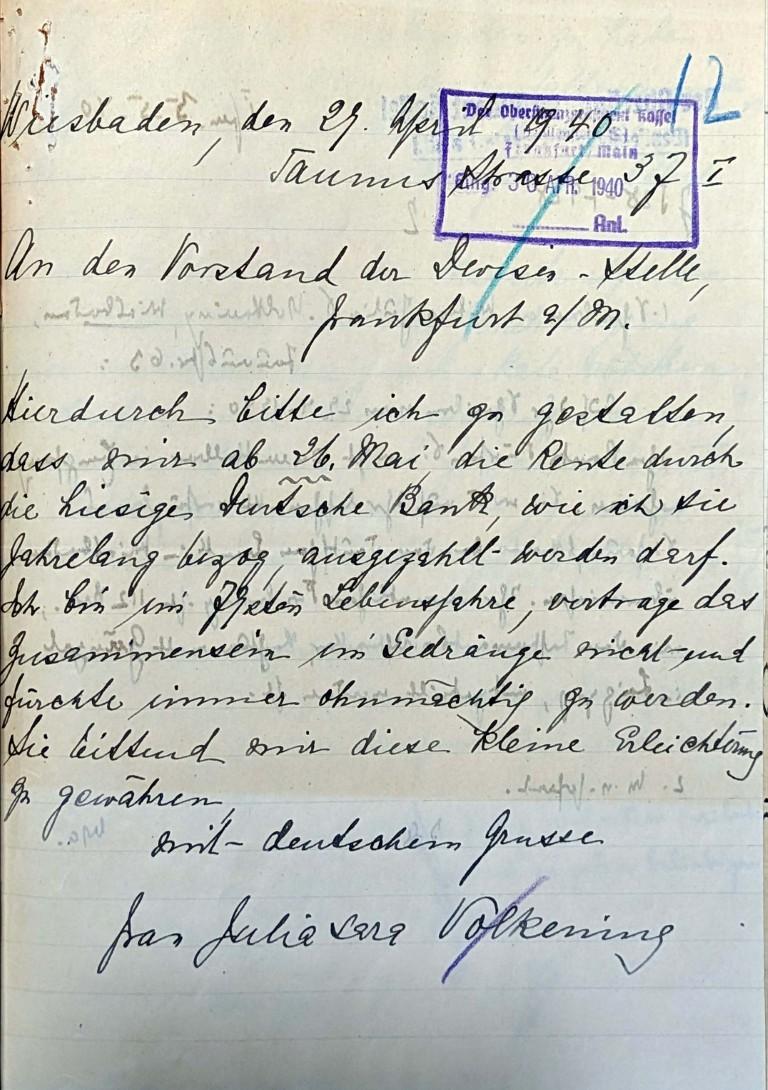 12
Wiesbaden, den 29. April 1940
Der Oberfinanzpräsident Kassel
(Devisenstelle S)
Frankfurt/Main
Eing. 30. APR. 1940
Anl.
Taunus Strasse 37 I
An den Vorstand der Devisen-Stelle,
Frankfurt a/M.
Hierdurch bitte ich zu gestatten,
dass mir ab 26. Mai die Rente durch
die hiesige Deutsche Bank, wie ich sie
Jahrelang bezog, ausgezahlt werden darf.
Ich bin im 79sten Lebensjahre, vertrage das
Zusammensein im Gedränge nicht und
fürchte immer ohnmächtig zu werden.
Sie bittend mir diese kleine Erleichterung
zu gewähren,
mit deutschem Grusse
Frau Julia Sara Volkening